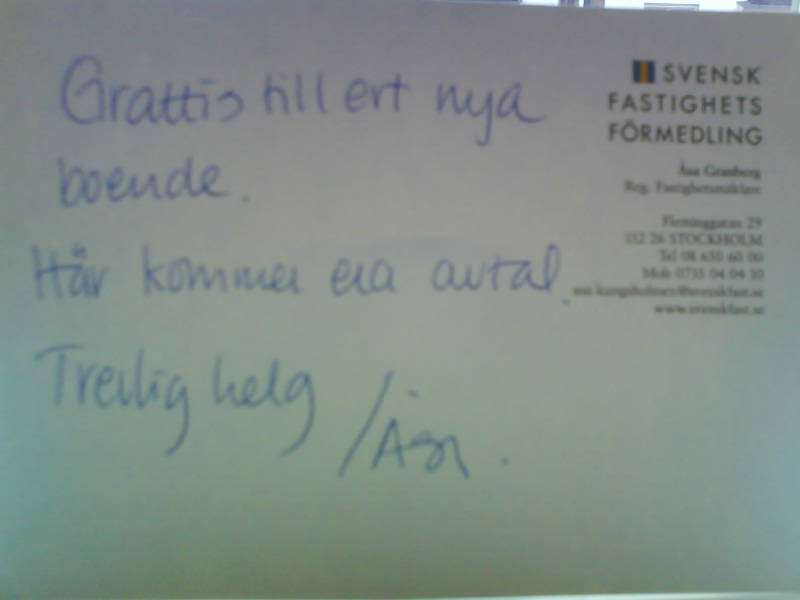 Grattis till ert nya
boende.
Här kommer era avtal.
Trevlig helg
/Åsa.
SVENSK
FASTIGHETS
FÖRMEDLING
Åsa Granberg
Reg. Fastighetsmäklare
Fleminggatan 29
112 26 STOCKHOLM
Tel 08 650 60 00
Mob 0735 04 04 10
www.svenskfast.se